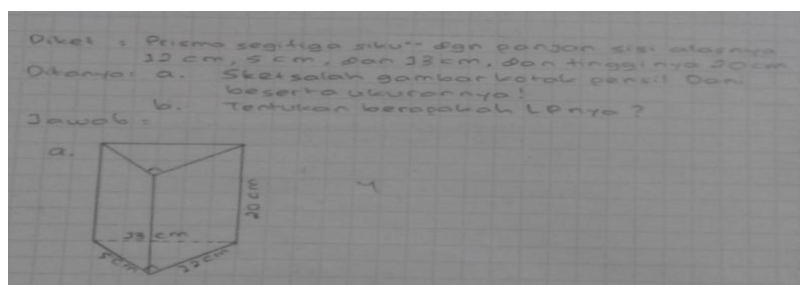 Diket : Prisma segitiga siku" dgn panjan sisi alasnya
12 cm, 5 cm, dan 13 cm, dan tingginya 20 cm
Ditanya: a. Sketsalah gambar kotak pensil Dani
beserta ukurannya!
b. Tentukan berapakah LPnya?
Jawab =
a.
20 cm
13 cm
5 cm
12 cm